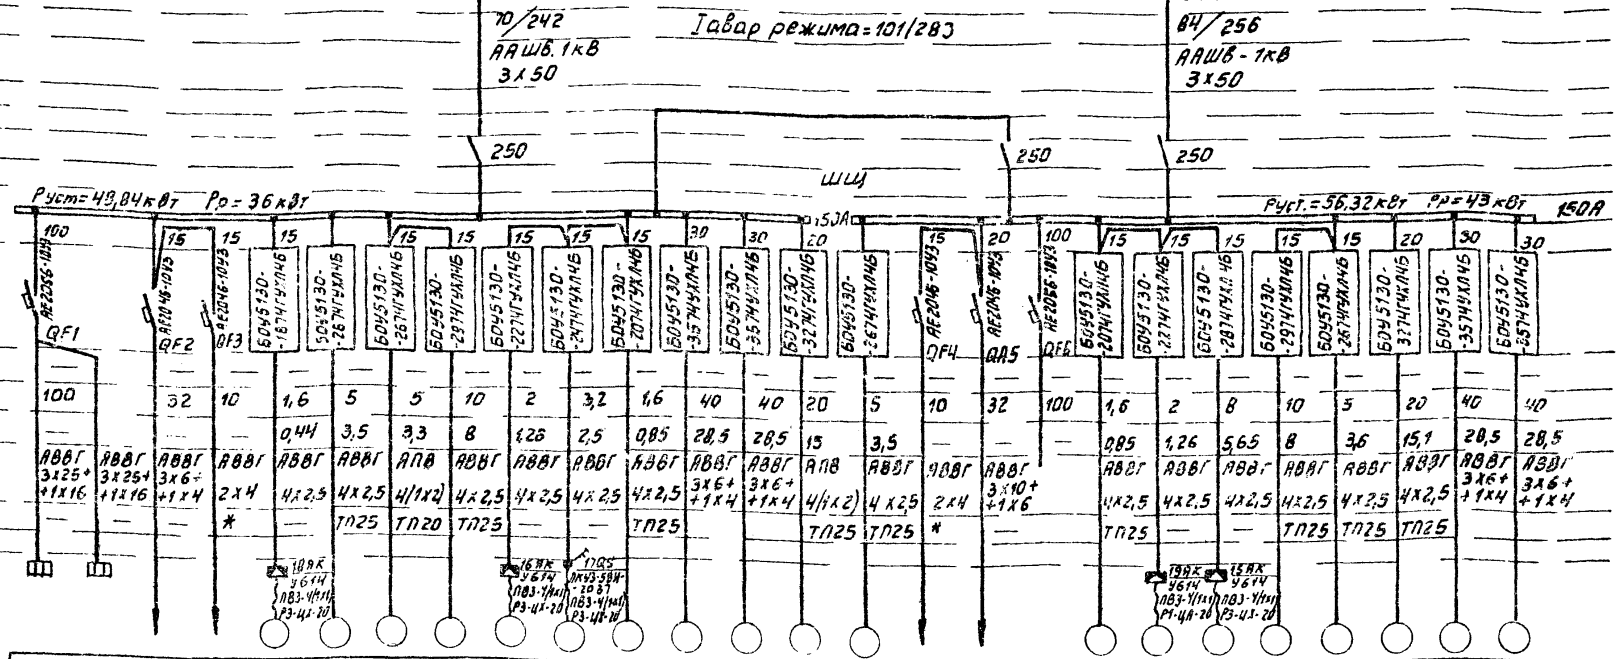 70/242
ААШВ.1кВ
3х50
Iавар режима=101/283
84/256
ААШВ-1кВ
3х50
250
250
250
ШЩ
Руст=49,84кВт Рр=36кВт
150А
Руст.=56,32кВт Рр=43кВт
150А
100 15 15 15 15 15 15 15 15 30 30 20 15 20 100 15 15 15 15 15 20 30 30
АЕ2046-10У3
АЕ2046-10У3
БОУ5130-
-1874ГУХЛ4Б
БОУ5130-
-2674ГУХЛ4Б
БОУ5130-
-2674ГУХЛ4Б
БОУ5130-
-2974ГУХЛ4Б
БОУ5130-
-2274ГУХЛ4Б
БОУ5130-
-2474ГУХЛ4Б
БОУ5130-
-2074ГУХЛ4Б
БОУ5130-
-3574УХЛ4Б
БОУ5130-
-3574УХЛ4Б
БОУ5130-
-3274УХЛ4Б
БОУ5130-
-2674ГУХЛ4Б
АЕ2046-10У3
АЕ2046-10У3
БОУ5130-
-2074ГУХЛ4Б
БОУ5130-
-2274ГУХЛ4Б
БОУ5130-
-2874ГУХЛ4Б
БОУ5130-
-2974ГУХЛ4Б
БОУ5130-
-2674ГУХЛ4Б
БОУ5130-
-3274УХЛ4Б
БОУ5130-
-3574УХЛ4Б
БОУ5130-
-3574УХЛ4Б
QF1 QF2 QF3 QF4 QА5 QF6
100 32 10 1,6 5 5 10 2 3,2 1,6 40 40 20 5 10 32 100 1,6 2 8 10 5 20 40 40
0,44 3,5 3,3 8 1,26 2,5 0,85 28,5 28,5 15 3,5 0,85 1,26 5,65 8 3,6 15,1 28,5 28,5
АВВГ АВВГ АВВГ АВВГ АВВГ АВВГ АПВ АВВГ АВВГ АВВГ АВВГ АВВГ АВВГ АПВ АВВГ АВВГ АВВГ АВВГ АВВГ АВВГ АВВГ АВВГ АВВГ АВВГ АВВГ
3х25+ 3х25+ 3х6+ 3х6+ 3х6+ 3х10+ 3х6+ 3х6+
+1х16 +1х16 +1х4 2х4 4х2,5 4х2,5 4/1х2) 4х2,5 4х2,5 4х2,5 4х2,5 +1х4 +1х4 4/1х2) 4х2,5 2х4 +1х6 4х2,5 4х2,5 4х2,5 4х2,5 4х2,5 4х2,5 +1х4 +1х4
* ТП25 ТП20 ТП25 ТП25 ТП25 ТП25 * ТП25 ТП25 ТП25 ТП25
18ЯК 16ЯК 17QS 19ЯК 15ЯК
У614 У614 У614 У614